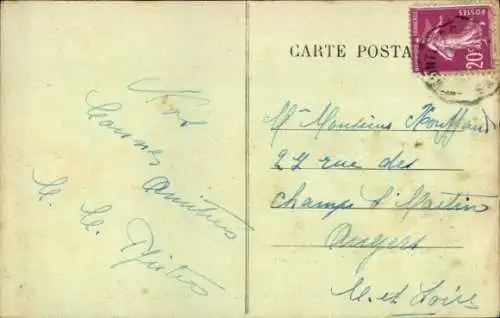 CARTE POSTA
POSTES
20c
Nos
bonnes
amitiés
M. Monsieur
27 rue des
Champs St Martin
Angers
M. et Loire